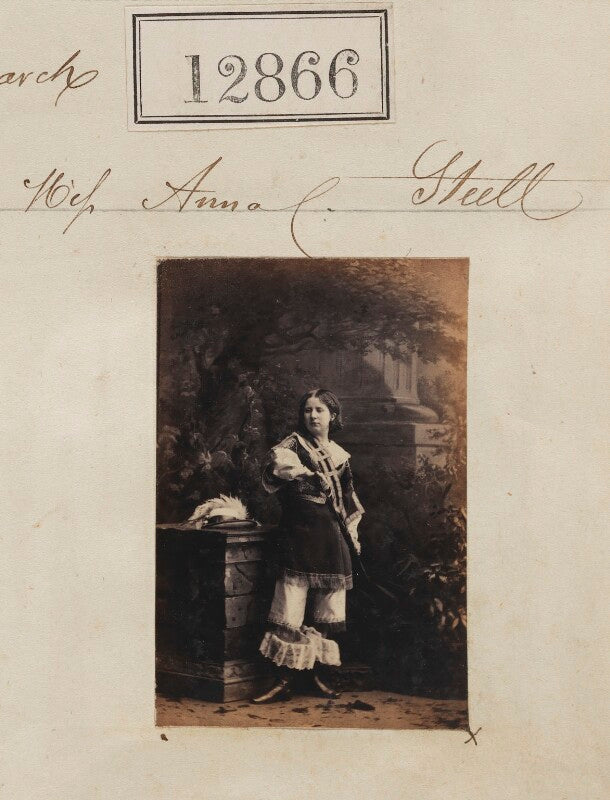 arch
12866
Miss Anna C. Steell
x